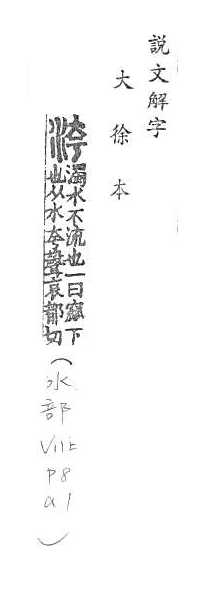 說文解字
大徐本
洿
濁水不流也一曰窳下
也从水夸聲哀都切
(水
部
V11上
P8
a1)